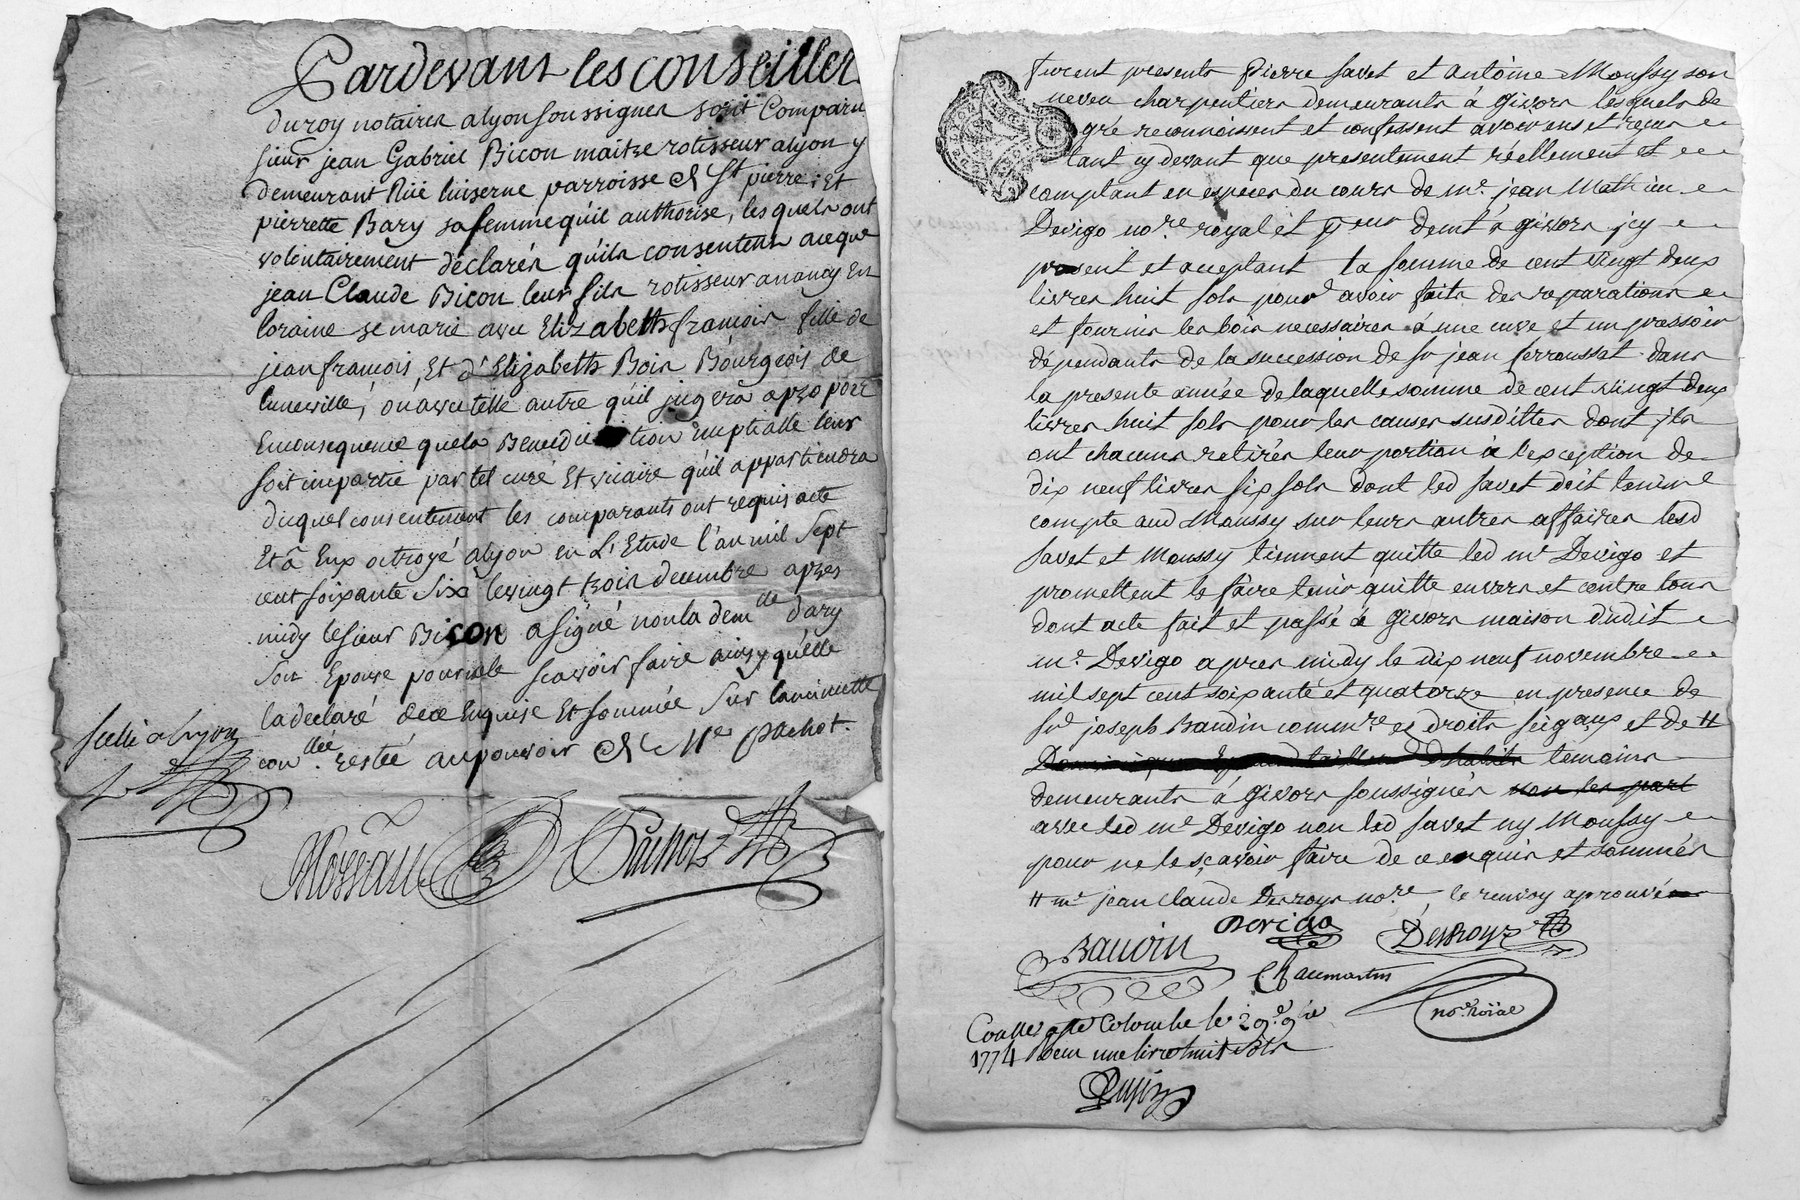 Pardevant les conseiller
du roy notaires a lyon soussignes sont Comparu
sieur jean Gabriel Bicon maitre rotisseur a lyon y
demeurant Rüe luiserne parroisse St pierre, Et
pierrette Bary sa femme qu'il authorise, lesquels ont
volontairement déclarés qu'ils consentent aceque
jean Claude Bicon leur fils rotisseur a nancy En
loraine se marie avec Elizabeth francois fille de
jean francois, Et d'Elizabeth Bois Bourgeois de
luneville, ou avec telle autre qu'il jugera apropos
Enconsequence que la Benediction nuptialle leur
soit impartie par tel curé Et vicaire qu'il appartiendra
duquel consentement les comparants ont requis acte
Et â Eux octroyé a lyon en L'Etude l'an mil sept
cent soixante six le vingt trois decembre apres
midy le sieur Bicon a signé non la dem.lle Bary
son Epouse pour ne le scavoir faire ainsy qu'elle
la declaré de ce Enquise Et sommée sur la minutte
con.llée restée au pouvoir de Me Pachot.
scellé a lyon
Pachot
furent presents Pierre Savet et Antoine Moussy son
neveu charpentiers demeurants à Givors lesquels de
gré reconnoissent et confessent avoir eus et reçus
tant cy devant que presentement réellement et
comptant en especes du cours de me. jean Mathieu
Devigo no.re royal et demt à Givors icy
present et aceptant la somme de cent vingt deux
livres huit sols pour avoir faits des reparations
et fournis les bois necessaires à une cuve et un pressoir
dépendants de la succession de sr jean ferroussat dans
la presente année de laquelle somme de cent vingt deux
livres huit sols pour les causes susdittes dont ils
ont chacuns retirés leur portion à l'exception de
dix neuf livres six sols dont led Savet doit tenir
compte aud Moussy sur leurs autres affaires lesd
Savet et Moussy tiennent quitte led me Devigo et
promettent le faire tenir quitte envers et contre tous
dont acte fait et passé à Givors maison dudit
me. Devigo apres midy le dix neuf novembre
mil sept cent soixante et quatorze en presence de
sr. joseph Baudin comm.re es droits seig.aux et de #
temoins
demeurants à Givors soussignés non les part
avec led me Devigo non led Savet ny Moussy
pour ne le sçavoir faire de ce enquis et sommés
# me jean claude Desroys no.re, le renvoy aprouvé
Devigo
Baudin
Desroys
Chaumartin
no.re roïal
Con.llé a ste Colombe le 29.e 9.bre
1774 Reçu une livre huit sols